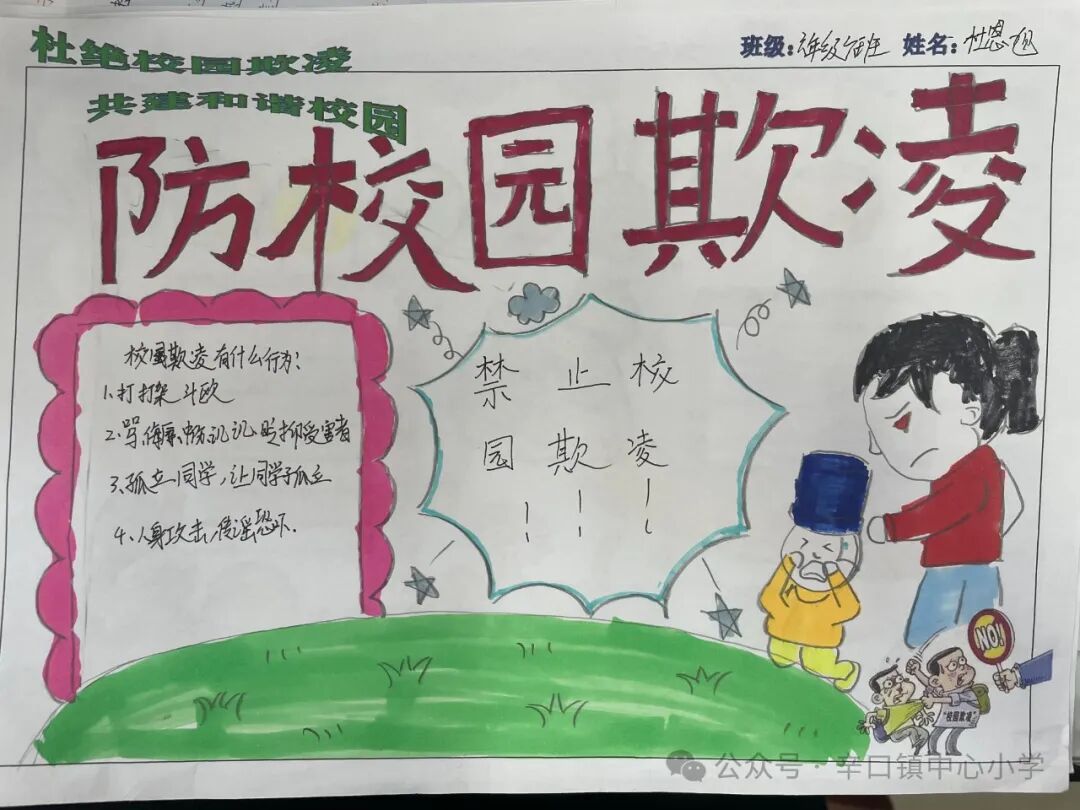 杜绝校园欺凌
共建和谐校园
班级: 姓名: 杜恩旭
防校园欺凌
校园欺凌有什么行为:
1、打打架 斗殴
2、骂 侮辱 贬抑受害者
3、孤立同学,让同学孤立
4、人身攻击 传谣恐吓.
禁止校
园欺凌
!!!
NO!
"校园欺凌"
公众号·辛口镇中心小学